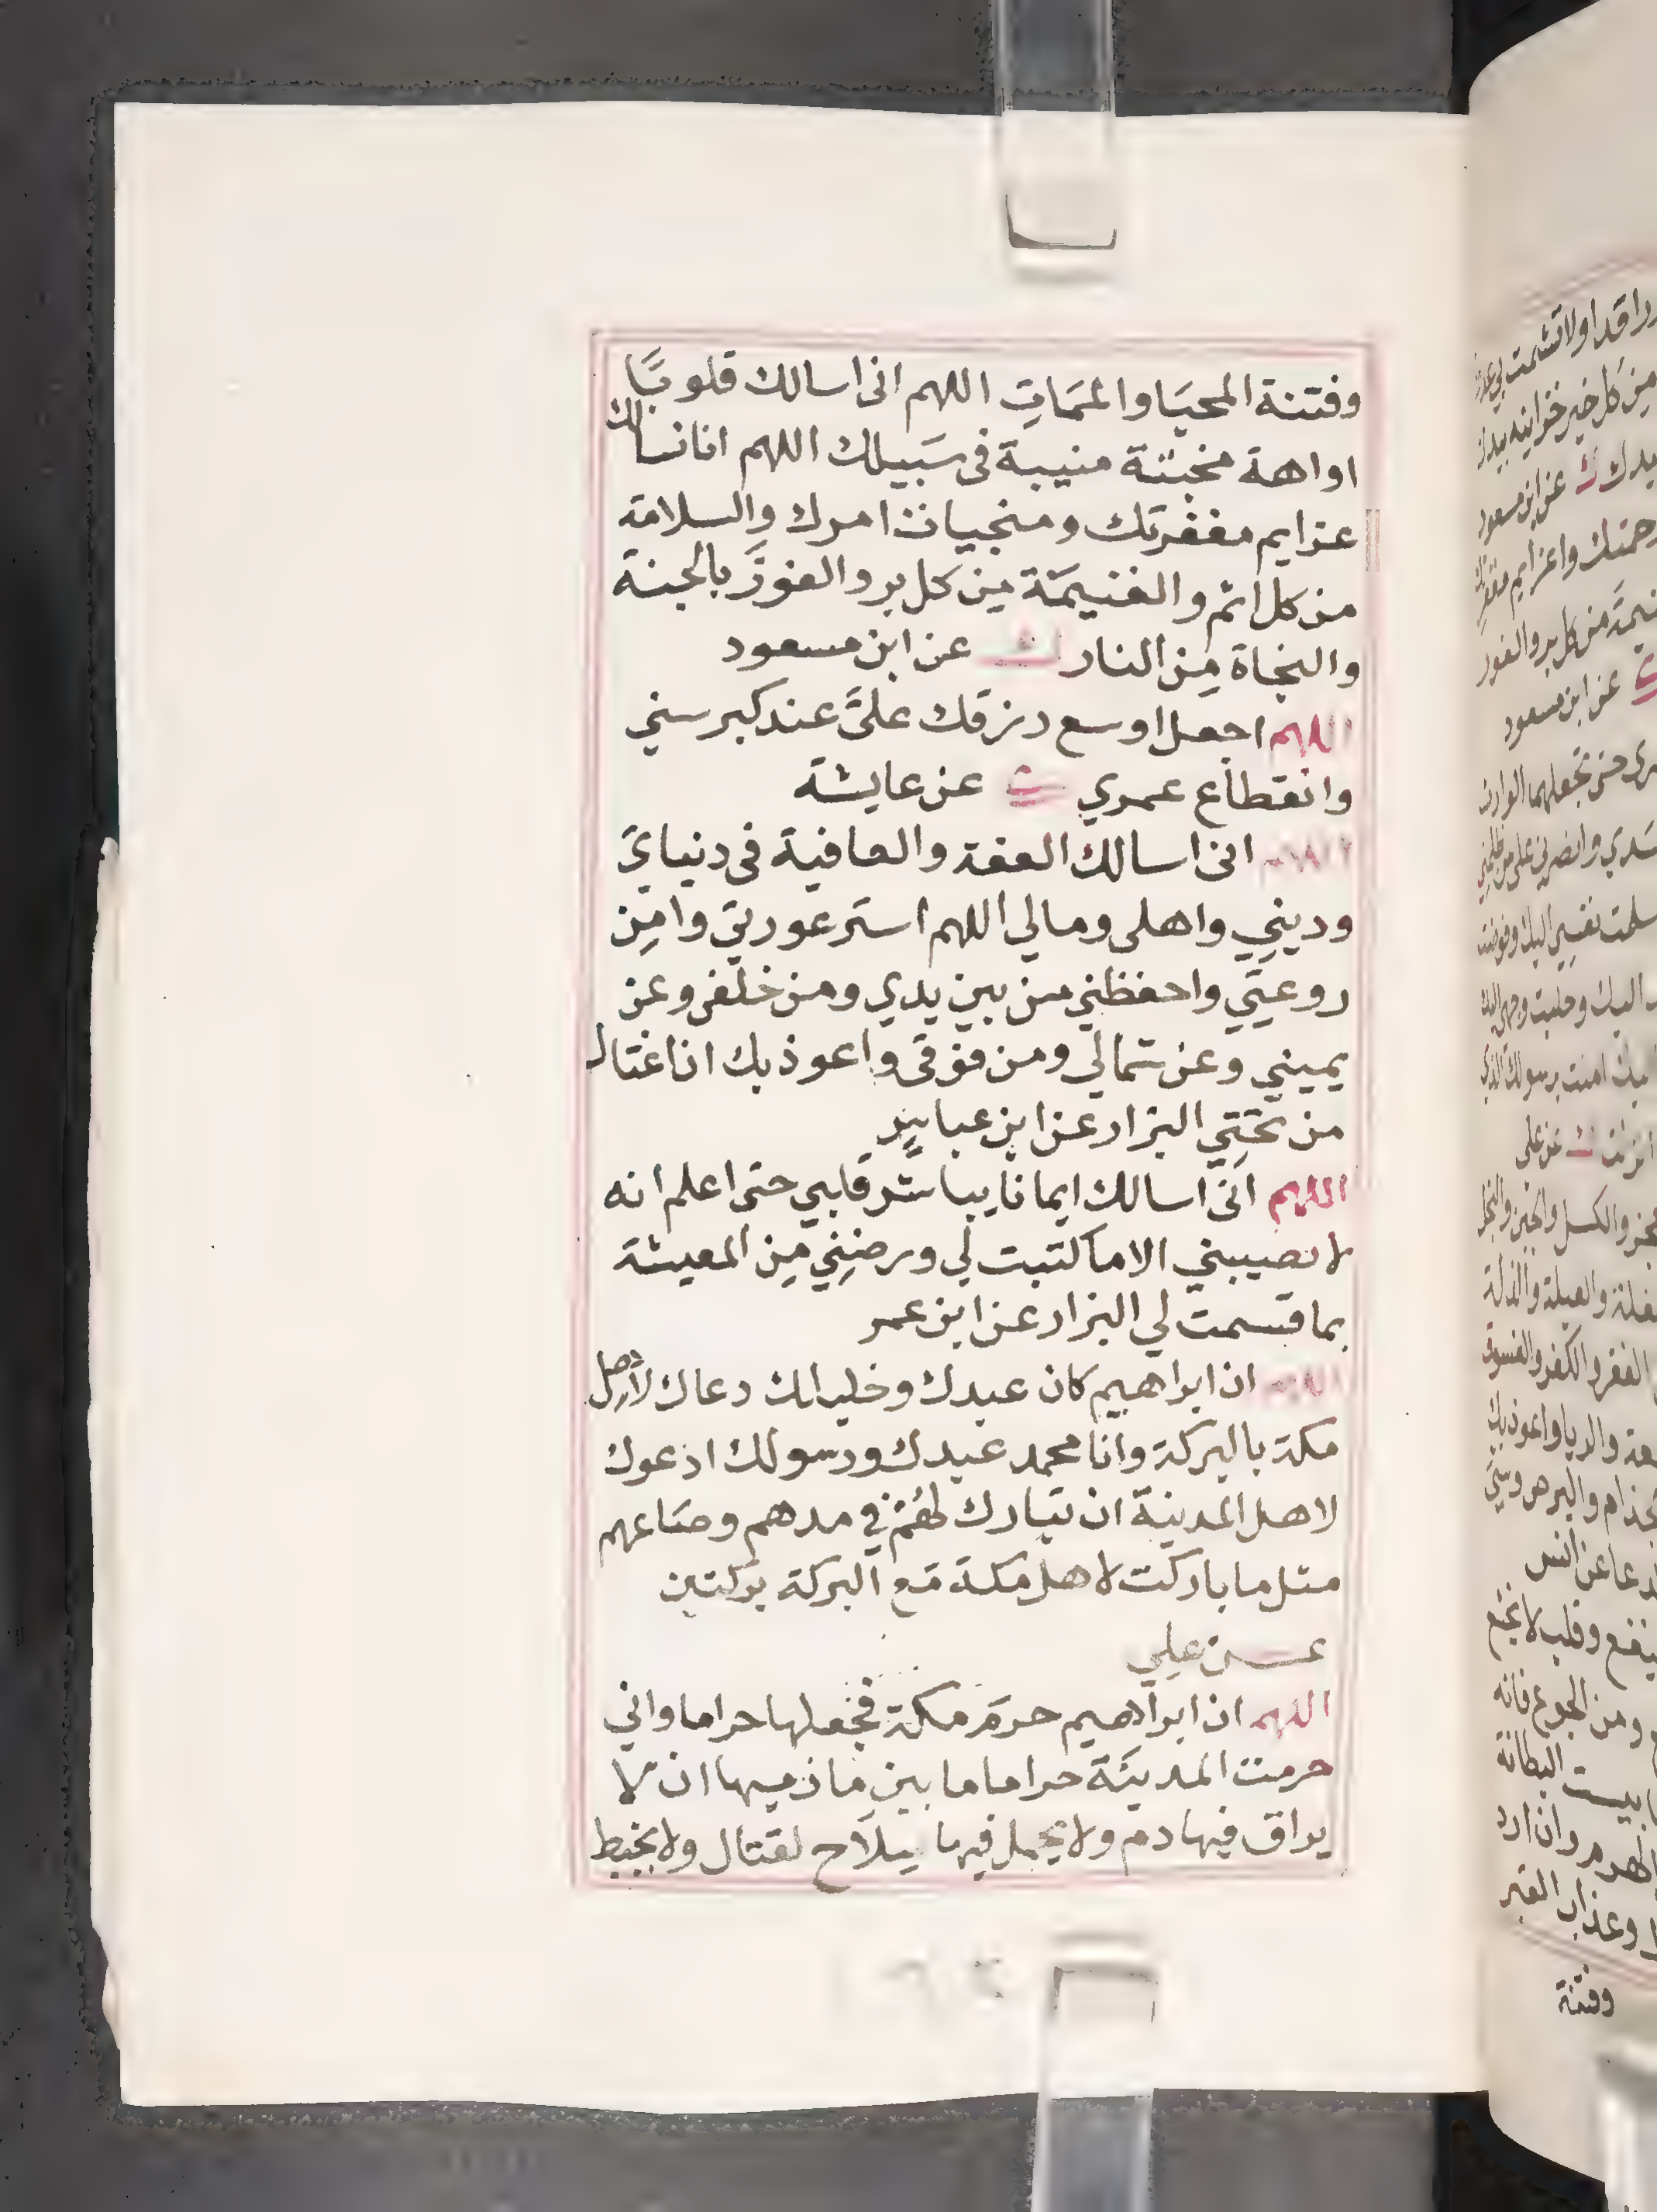 وفتنة المحيَا والممَاتِ اللهم انى اسالك قلوبًا
اواهة مخبتة منيبة فى سَبيلك اللهم انا نسالك
عزايم مغفرتك ومنجيات امرك والسلامة
من كل اثم والغنيمَة مِن كل بر والفوزَ بالجنة
والنجاة مِن النار ك عن ابن مسعود
اللهم اجعل اوسع رزقك علىَّ عند كبر سني
وانقطاع عمري ك عن عايشة
اللهم انى اسالك العفة والعافية فى دنيايَ
ودينِي واهلى ومالي اللهم استر عورتي وامِن
روعتِي واحفظني من بين يدي ومن خلفى وعن
يميني وعن شمالي ومن فوقى واعوذ بك ان اغتال
من تحتِي البزار عن ابن عباس
اللهم انى اسالك ايمانا يباشر قلبي حتى اعلم انه
لا يصيبني الا ما كتبت لي ورضنِي مِن المعيشة
بما قسمت لي البزار عن ابن عمر
اللهم ان ابراهيم كان عبدك وخليلك دعاك لاهل
مكة بالبركة وانا محمد عبدك ورسولك ادعوك
لاهل المدينة ان تبارك لهُم في مدهم وصَاعهم
مثل ما باركت لاهل مكة مَع البركة بركتين
عن علِي
اللهم ان ابراهيم حرمَ مكة فجعلها حراما واني
حرمت المدينَة حراما ما بين مازميها ان لا
يراق فيها دم ولا يحمل فيها سِلَاح لقتال ولا يخبط